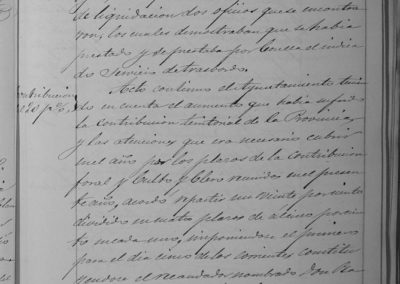 de liquidacion dos oficios que se encontra
ron, los cuales demostraban que se habia
prestado y de prestaba por Concea el indica
do Servicio de trasbordo.
Acto continuo el Ayuntamiento tenien
contribucion
do en cuenta el aumento que habia sufrido
la contribucion territorial de la Provincia,
y las atenciones que era necesario cubrir
en el año por los plazos de la contribucion
foral y Culto y Clero reunidos en el presen
te año, acordó repartir un veinte por ciento
dividido en cuatro plazos de a cinco por cien
to en cada uno, imponiendose el primero
para el dia cinco de los corrientes constitu
yendose el Recaudador nombrado Don